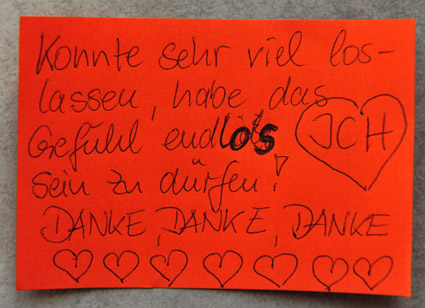 Konnte sehr viel los-
lassen, habe das
Gefühl endlos ICH
sein zu dürfen!
DANKE, DANKE, DANKE